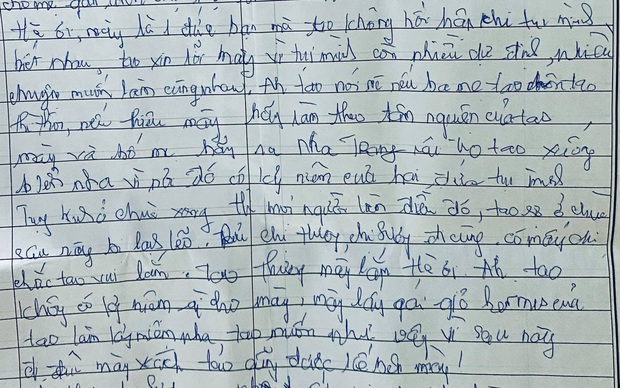 cho mẹ
Hà ơi, mày là 1 đứa bạn mà tao không hối hận khi tụi mình
biết nhau, tao xin lỗi mày vì tụi mình còn nhiều dự định, nhiều
chuyện muốn làm cùng nhau. Ah tao nói mẹ nếu ba mẹ tao chôn tao
thì thôi, nếu thiêu mày hãy làm theo tâm nguyện của tao,
mày và bố mẹ hãy ra nha Trang rải tro tao xuống
biển nha vì nơi đó có kỷ niệm của hai đứa tụi mình
Tụng kinh ở chùa xong thì mọi người làm điều đó, tao sợ ở chùa
sau này bị lạc lõng. chị thuỳ, chị đi cùng. có mấy chị
chắc tao vui lắm. Tao thương mày lắm Hà ơi. Ah tao
không có kỷ niệm gì cho mày, mày lấy cái giỏ hermes của
tao làm kỷ niệm nha, tao muốn như vậy vì sau này
đi đâu mày xách tao cũng được kế bên mày!